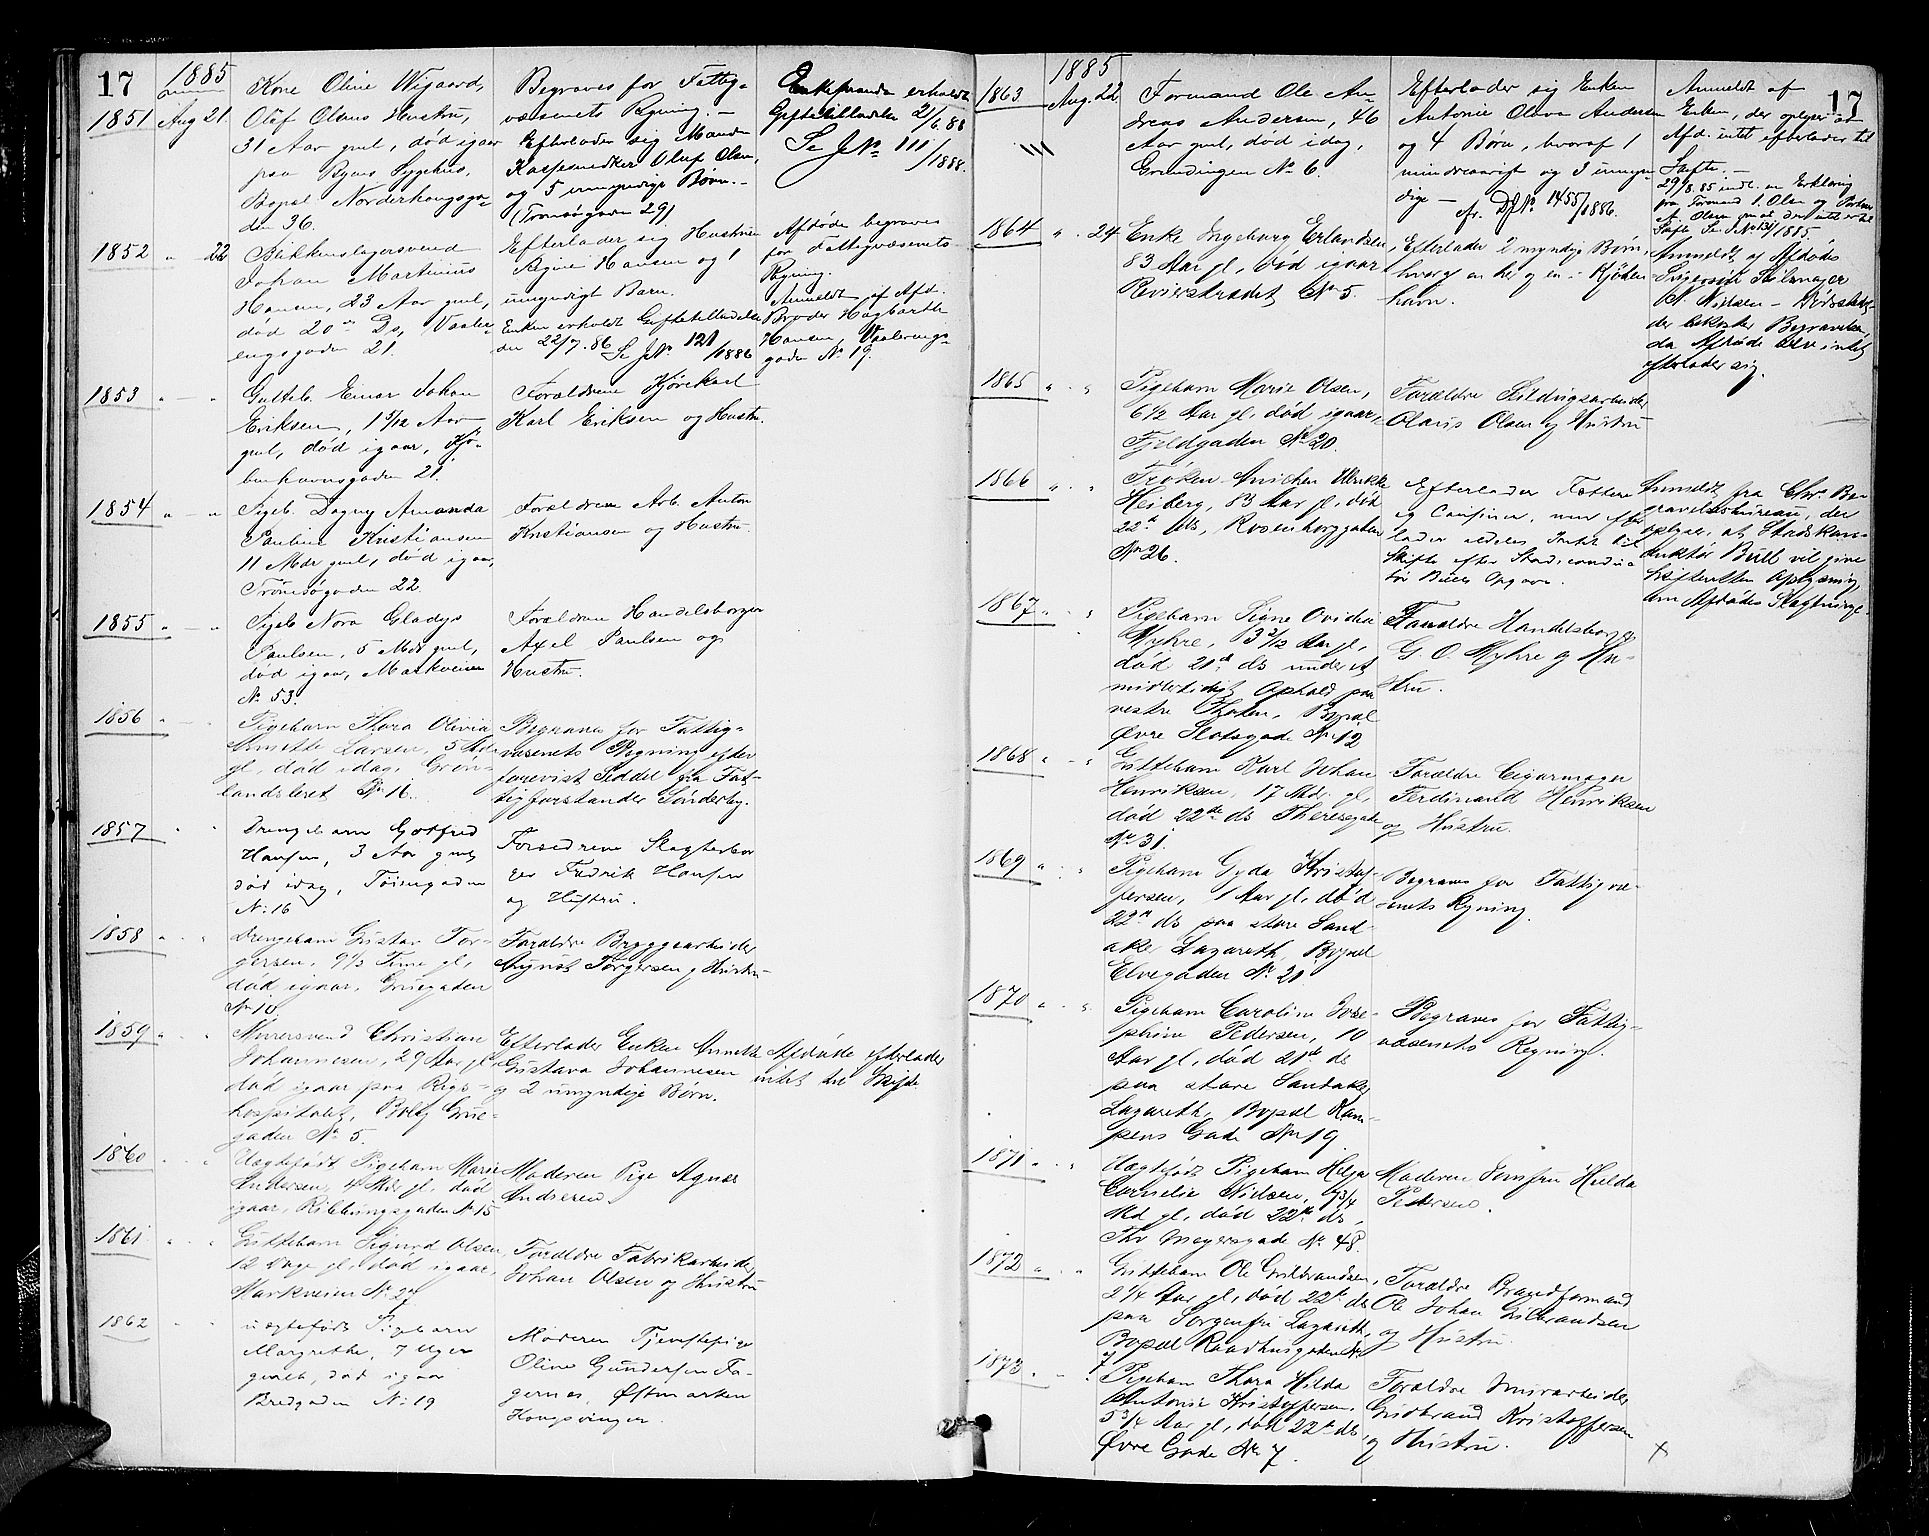 17
1885
1851 Aug 21
Kone Oline Wigaard,
Oluf Olsens Hustru,
31 Aar gml, død igaar
paa Byens Sygehus,
Bopæl Norderhougsga-
den 36.
Begraves for Fattig-
væsenets Regning.-
Efterlader sig Manden
Oluf Olsen,
og 5 umyndige Børn.-
(Tromsøgaden 29)
Enkemanden erholdt
Giftetilladelse 2/6.88
Se J.No 111/1888.
1852 " 22
Blikkenslagersvend
Johan Martinius
Hansen, 23 Aar gml,
død 20de Ds, Vaaler-
engsgaden 21.
Efterlader sig Hustruen
Regine Hansen og 1
umyndigt Barn.
Enken erholdt Giftetilladelse
den 22/7.86 Se J.No 121/1886
Afdøde begraves
for Fattigvæsenets
Regning.
Anmeldt af Afd.
Broder Hagbarth
Hansen, Vaalerengs-
gaden No 19.
1853 " - "
Gutteb. Einar Johan
Eriksen, 1 5/12 Aar
gml, død igaar, Kjø-
benhavnsgaden 21.
Forældrene Kjørekarl
Karl Eriksen og Hustru.
1854 " - "
Pigeb. Dagny Amanda
Pauline Kristiansen
11 Mdr gml, død igaar,
Tromsøgaden 22.
Forældrene Arb. Anton
Kristiansen og Hustru.
1855 " - "
Pigeb Nora Gladys
Paulsen, 5 Mdr gml,
død igaar, Markveien
No 53.
Forældrene Handelsborger
Axel Paulsen og
Hustru.
1856 " - "
Pigebarn Thora Olivia
Annette Larsen, 5 Md.
gl, død idag, Grøn-
landsleret No 16.
Begraves for Fattig-
væsenets Regning efter
forevist Seddel fra Fat-
tigforstander Sønderby.
1857 " "
Drengebarn Gotfred
Hansen, 3 Aar gml,
død idag, Tøiengaden
No 16
Forældrene Slagterbor
ger Fredrik Hansen
og Hustru.
1858 " "
Drengebarn Gustav Tor-
gersen, 9½ Time gl,
død igaar, Gruegaden
No 10.
Forældre Bryggearbeider
August Torgersen og Hustru
1859 " "
Murersvend Christian
Johannesen, 29 Aar gl,
død igaar paa Rigs-
hospitalet, Bolig Grue-
gaden No 5.
Efterlader Enken Annette
Gustava Johannesen
og 2 umyndige Børn.
Afdøde efterlader
intet til Skifte
1860 " "
Uægtefødt Pigebarn Marie
Andersen, 4 Mdr gl, død
igaar, Ribbungsgaden No 15
Moderen Pige Agnes
Andresen
1861 " "
Guttebarn Sigurd Olsen,
12 Dage gl, død igaar,
Markveien No 27
Forældre Fabrikarbeider
Johan Olsen og Hustru
1862 " "
uægtefødt Pigebarn
Margrethe, 7 Uger
gml, død igaar
Bredgaden No 19
Moderen Tjenestepige
Oline Gundersen Fa-
gernes, Østmarken
Kongsvinger.
17
1885
1863 Aug. 22
Formand Ole An-
dreas Andersen, 46
Aar gml, død idag,
Grændingen No 6.
Efterlader sig Enken
Antonie Olava Andersen
og 4 Børn, hvoraf 1
mindreaarigt og 3 umyn-
dige -
Av. DJNo 1455/1886.
Anmeldt af
Enken, der oplyser at
Afd. intet efterlader til
Skifte. -
29/8.85 indl. en Erklæring
fra Formand I. Olsen og
A. Olsen om at der intet er til
Skifte Se J No 131/1885
1864 " 24
Enke Ingeborg Erlandsen,
83 Aar gl, død igaar
Revierstrædet No 5.
Efterlader 2 myndige Børn,
hvoraf en he og en i Kjøben-
havn.
Anmeldt af Afdødes
Svigersøn Feilmager
N. Nielsen - Dødsat
der bekoster Begravelsen,
da Afdøde selv intet
efterlader sig.
1865 " "
Pigebarn Marie Olsen,
6½ Aar gl, død igaar,
Fjeldgaden No 20.
Forældre Sildingsarbeider
Olaus Olsen og Hustru
1866 " "
Frøken Anichen Ulrikke
Heiberg, 83 Aar gl, død
22de ds, Rosenborggaden
No 26.
Efterlader Fættere
og Cousiner, men efter
lader aldeles Intet til
Skifte efter Stadsconduc-
tør Bulls Opgave.
Anmeldt fra Chra Be-
gravelsesbureau, der
oplyser, at Stadskon-
duktør Bull vil give
Skifteretten Oplysning
om Afdødes Slægtninge.
1867 " "
Pigebarn Signe Ovidia
Myhre, 3 2/12 Aar gl,
død 21de ds under et
midlertidigt Ophold paa
vestre Thoten, Bopæl
Øvre Slotsgade No 12
Forældre Handelsborger
G. O. Myhre og Hu-
stru.
1868 " "
Guttebarn Karl Johan
Henriksen, 17 Mdr. gl,
død 22de ds Theresegade
No 31.
Forældre Cigarmager
Ferdinand Henriksen
og Hustru.
1869 " "
Pigebarn Gyda Kristof-
fersen, 1 Aar gl, død
22de ds paa store Sand-
aker Lazareth, Bopæl
Elvegaden No 21
Begraves for Fattigvæ-
senets Regning.
1870 " "
Pigebarn Caroline Jose-
phine Pedersen, 10
Aar gl, død 21de ds
paa store Sandaker
Lazareth, Bopæl Kam-
pens Gade No 19
Begraves for Fattig-
væsenets Regning.
1871 " "
Uægtefødt Pigebarn Helga
Cornelia Nielsen, 9¾
Md gl, død 22de ds,
Thv Meyersgade No 48.
Moderen Jomfru Hulda
Pedersen.
1872 " "
Guttebarn Ole Gulbrandsen,
2¼ Aar gl, død 22de ds
paa Sorgenfri Lazareth,
Bopæl Raadhusgaden No
7
Forældre Brandformand
Ole Johan Gulbrandsen
og Hustru.
1873 " "
Pigebarn Thora Hilda
Antonie Kristoffersen,
5¾ Aar gl, død 22de ds,
Øvre Gade No 7.
Forældre Murarbeider
Gudbrand Kristoffersen
og Hustru.